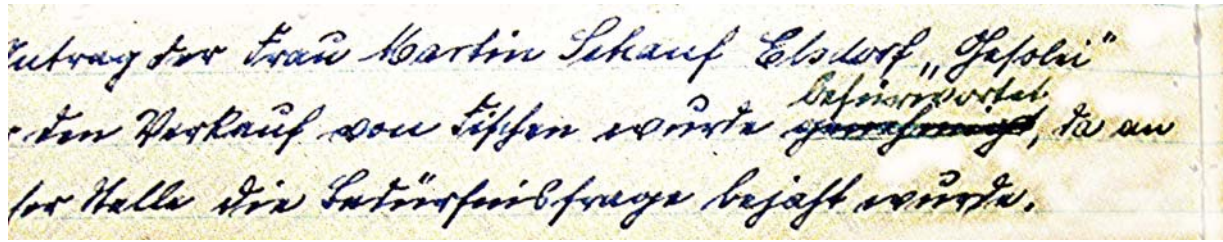 Antrag der Frau Martin Schauf Elsdorf „Gesolei“
befürwortet
den Verkauf von Fischen wurde genehmigt, da an
ser Stelle die Bedürfnisfrage bejaht wurde.